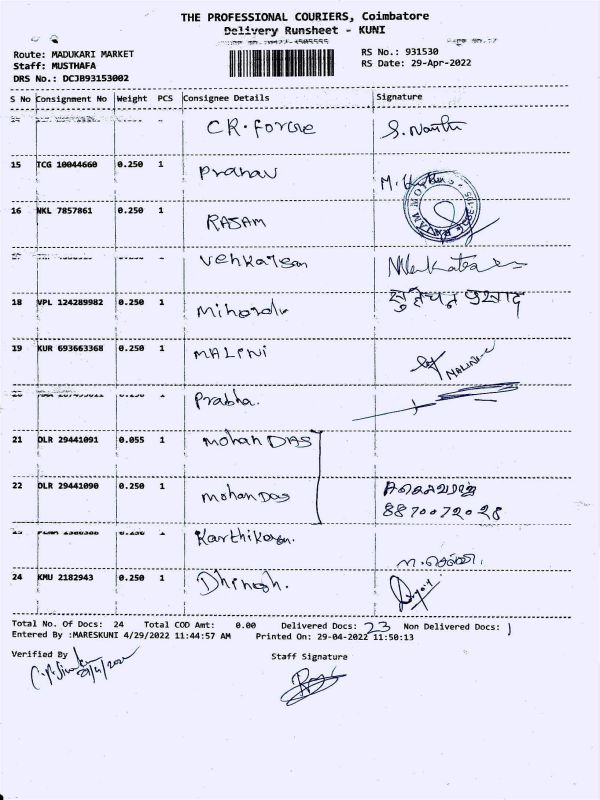 THE PROFESSIONAL COURIERS, Coimbatore
Delivery Runsheet - KUNI
Route: MADUKARI MARKET
RS No.: 931530
Staff: MUSTHAFA
RS Date: 29-Apr-2022
DRS No.: DCJB93153002
S No Consignment No Weight PCS Consignee Details Signature
CR. Forgle S. Nanthi
15 TCG 10044660 0.250 1 Pranav
16 NKL 7857861 0.250 1 RASAM
Venkatesan Venkatesan
18 VPL 124289982 0.250 1
19 KUR 693663368 0.250 1 MALINI MALINI
Prabha.
21 DLR 29441091 0.055 1 Mohan DAS
22 DLR 29441090 0.250 1 Mohan Das
8870072028
Karthikeyan.
24 KMU 2182943 0.250 1 Dhinesh.
Total No. Of Docs: 24 Total COD Amt: 0.00 Delivered Docs: 23 Non Delivered Docs: 1
Entered By :MARESKUNI 4/29/2022 11:44:57 AM Printed On: 29-04-2022 11:50:13
Verified By
Staff Signature